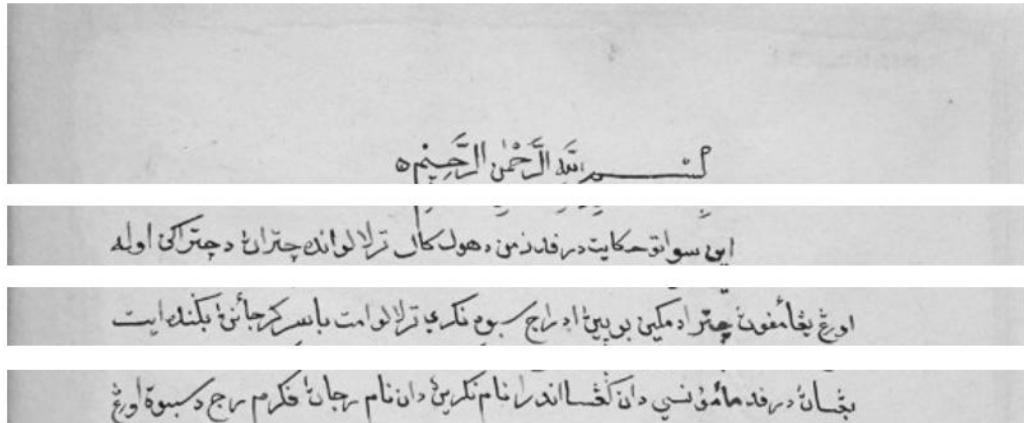 بســم الله الرَّحْمٰنِ الرَّحِيْمِ ه
اين سواتو حكاية درفد زمن دهولكال ترلالو انده چتراڽ دچتراكن اوله
اورڠ يڠ امفوڽ چترا دمكين بوڽيڽ اد راج سبوه نكري ترلالو امت باسر كرجأنڽ بكند ايت
بڠساڽ درفد دان اندرا نام نكريڽ دان نام رجاڽ فكرم رج دسبوة اورڠ